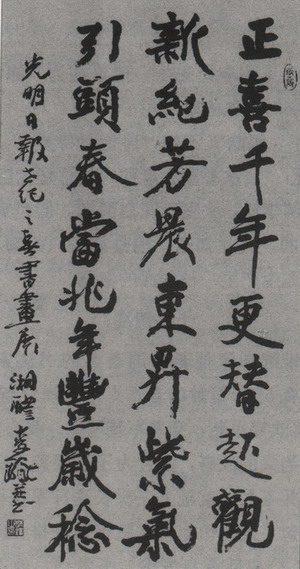 正喜千年更替起觀
新紀芳晨東昇紫氣
引頭春當兆年豐歲稔
光明日報世紀之喜書畫展 湘醴